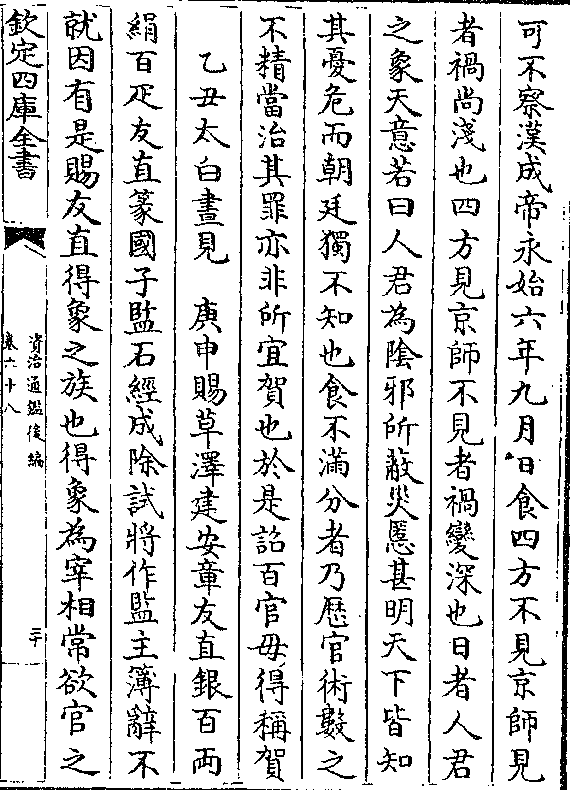 可不察漢成帝永始六年九月日食四方不見京師見
者禍尚淺也四方見京師不見者禍變深也日者人君
之象天意若曰人君為陰邪所蔽災慝甚明天下皆知
其憂危而朝廷獨不知也食不滿分者乃歴官術數之
不精當治其罪亦非所宜賀也於是詔百官毋得稱賀
乙丑太白晝見　庚申賜草澤建安章友直銀百兩
絹百疋友直篆國子監石經成除試將作監主簿辭不
就因有是賜友直得象之族也得象為宰相常欲官之
欽定四庫全書
資治通鑑後編
卷六十八
三十